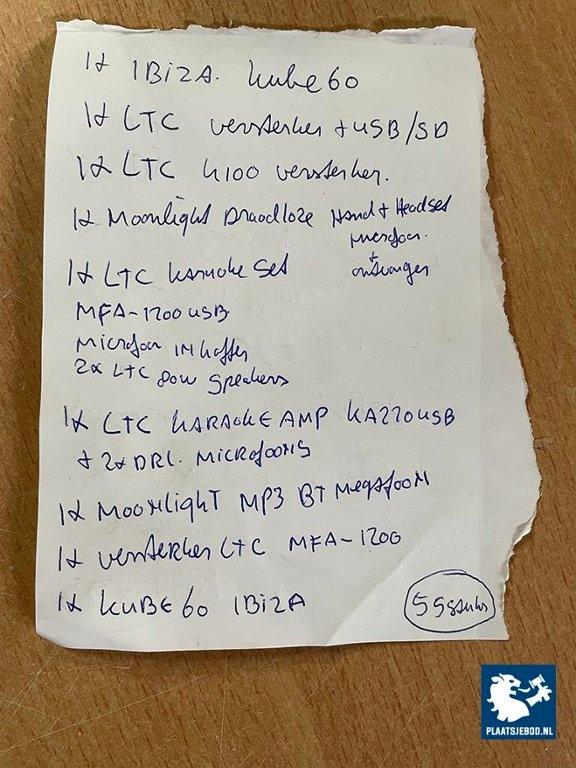 1x IBIZA Kube 60
1x LTC versterker + USB/SD
1x LTC H100 versterker.
1x Moonlight Draadloze Hand + Headset
microfoon.
+
ontvanger
1x LTC Karaoke Set
MFA-1200 USB
Microfoon IN koffer
2x LTC 80W Speakers
1x LTC KARAOKE AMP KA220USB
+ 2x DRL. MICROFOONS
1x MOONLIGHT MP3 BT MEGAFOON
1x versterker LTC MFA-1200
1x KUBE 60 IBIZA
PLAATSJEBOD.NL